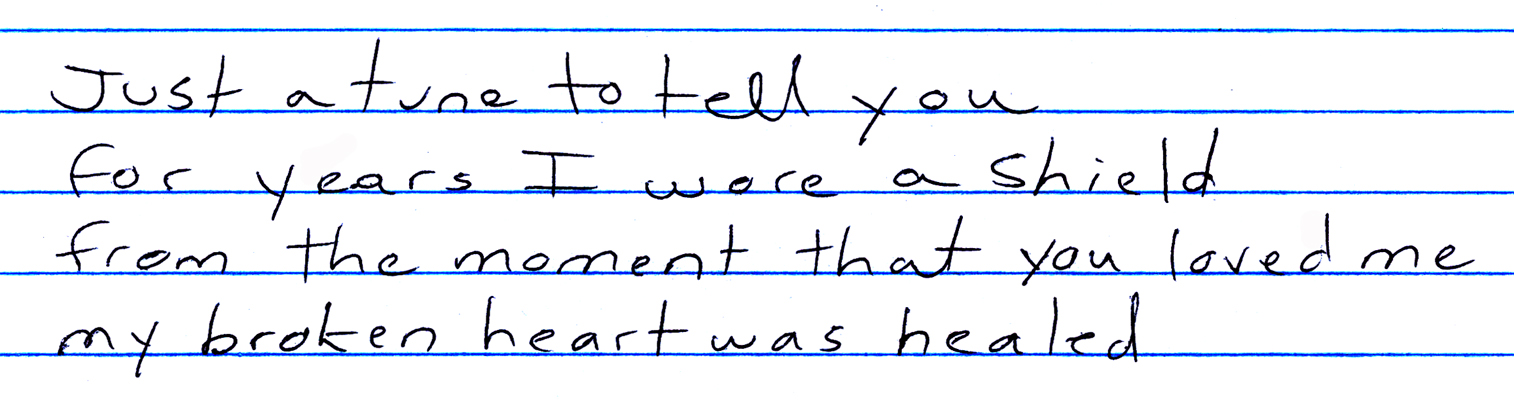 Just a tune to tell you
for years I wore a shield
from the moment that you loved me
my broken heart was healed